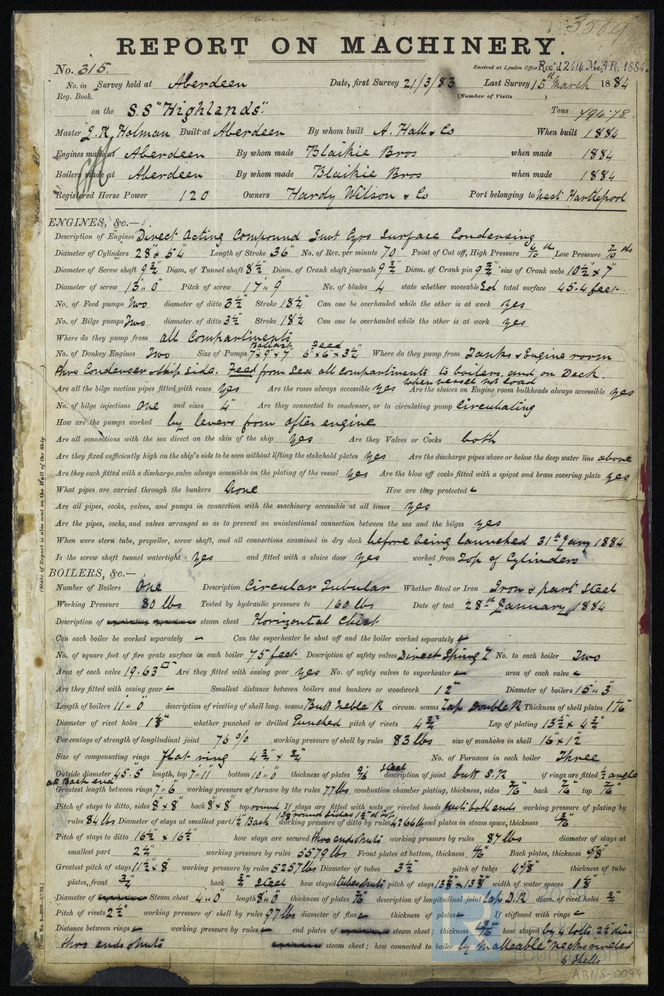 3509
REPORT ON MACHINERY.
No. 315. Received at London Office Rec'd 24th MAR. 1884
No. in Survey held at Aberdeen Date, first Survey 21/3/83 Last Survey 15th March 1884
Reg. Book. (Number of Visits
on the S.S "Highlands". Tons 494.78
Master J.R. Holman Built at Aberdeen By whom built A. Hall & Co When built 1884
Engines made at Aberdeen By whom made Blaikie Bros when made 1884
Boilers made at Aberdeen By whom made Blaikie Bros when made 1884
Registered Horse Power 120 Owners Hardy Wilson & Co Port belonging to West Hartlepool
ENGINES, &c.—
Description of Engines Direct Acting Compound Invt Cyrs Surface Condensing
Diameter of Cylinders 28 & 54 Length of Stroke 36 No. of Rev. per minute 70 Point of Cut off, High Pressure Low Pressure
Diameter of Screw shaft 9 3/4 Diam. of Tunnel shaft 8 1/2 Diam. of Crank shaft journals 9 3/4 Diam. of Crank pin 9 3/4 size of Crank webs 10 1/2 x 7
Diameter of screw 13"0 Pitch of screw 17"9 No. of blades 4 state whether moveable Sol total surface 45.4 feet
No. of Feed pumps Two diameter of ditto 3 1/2 Stroke 18 1/2 Can one be overhauled while the other is at work yes
No. of Bilge pumps Two diameter of ditto 3 1/2 Stroke 18 1/2 Can one be overhauled while the other is at work yes
Where do they pump from all Compartments
No. of Donkey Engines Two Size of Pumps Ballast 7 x 9 x 7 Feed 6 x 6 x 3 1/2 Where do they pump from Tanks & Engine room
thro Condenser & ship side. Feed from sea all compartments to boilers, and on Deck.
Are all the bilge suction pipes fitted with roses yes Are the roses always accessible yes when vessel not load Are the sluices on Engine room bulkheads always accessible yes
No. of bilge injections One and sizes 4" Are they connected to condenser, or to circulating pump circulating
How are the pumps worked by levers from after engine
Are all connections with the sea direct on the skin of the ship yes Are they Valves or Cocks both
Are they fixed sufficiently high on the ship's side to be seen without lifting the stokehold plates yes Are the discharge pipes above or below the deep water line above
Are they each fitted with a discharge valve always accessible on the plating of the vessel yes Are the blow off cocks fitted with a spigot and brass covering plate yes
What pipes are carried through the bunkers None How are they protected -
Are all pipes, cocks, valves, and pumps in connection with the machinery accessible at all times yes
Are the pipes, cocks, and valves arranged so as to prevent an unintentional connection between the sea and the bilges yes
When were stern tube, propeller, screw shaft, and all connections examined in dry dock before being launched 31st Jany 1884
Is the screw shaft tunnel watertight yes and fitted with a sluice door yes worked from Top of Cylinders
BOILERS, &c.—
Number of Boilers One Description Circular Tubular Whether Steel or Iron Iron & part Steel
Working Pressure 80 lbs Tested by hydraulic pressure to 160 lbs Date of test 28th January 1884
Description of steam chest Horizontal Chest
Can each boiler be worked separately - Can the superheater be shut off and the boiler worked separately -
No. of square feet of fire grate surface in each boiler 75 feet Description of safety valves Direct Spring No. to each boiler Two
Area of each valve 19.63 Are they fitted with easing gear yes No. of safety valves to superheater - area of each valve -
Are they fitted with easing gear - Smallest distance between boilers and bunkers or woodwork 12" Diameter of boilers 15"3
Length of boilers 11"0 description of riveting of shell long. seams Butt Treble R circum. seams Lap Double R Thickness of shell plates
Diameter of rivet holes whether punched or drilled Punched pitch of rivets 4 3/4 Lap of plating 13 1/2 x 4 3/4
Percentage of strength of longitudinal joint 76 % working pressure of shell by rules 83 lbs size of manholes in shell 16 x 12
Size of compensating rings flat ring 4 3/4 x 3/4 No. of Furnaces in each boiler Three
Outside diameter 45.5 length, top 7"11 bottom 10"0 thickness of plates 9/16 Steel description of joint butt S.R if rings are fitted
Greatest length between rings 7"6 working pressure of furnace by the rules 77 lbs combustion chamber plating, thickness, sides back top
Pitch of stays to ditto, sides 8 x 8 back 8 x 8 top round If stays are fitted with nuts or riveted heads nuts both ends working pressure of plating by
rules 84 lbs Diameter of stays at smallest part working pressure of ditto by rules end plates in steam space, thickness
Pitch of stays to ditto 16 1/2 x 16 1/2 how stays are secured thro ends & nuts working pressure by rules 87 lbs diameter of stays at
smallest part working pressure by rules 5579 lbs Front plates at bottom, thickness Back plates, thickness
Greatest pitch of stays 11 1/2 x 8 working pressure by rules 5257 lbs Diameter of tubes 3 1/2 pitch of tubes 4 5/8 thickness of tube
plates, front 3/4 back 3/4 Steel how stayed tubes & nuts pitch of stays width of water spaces
Diameter of Steam chest 4"0 length 8"0 thickness of plates description of longitudinal joint lap D.R diam. of rivet holes
Pitch of rivets 2 1/2 working pressure of shell by rules 97 lbs diameter of flue - thickness of plates - If stiffened with rings -
Distance between rings - working pressure by rules - end plates of steam chest; thickness how stayed by 4 bolts
thro ends & nuts steam chest; how connected to boiler by malleable necks riveted
to shells
ABNS-0094